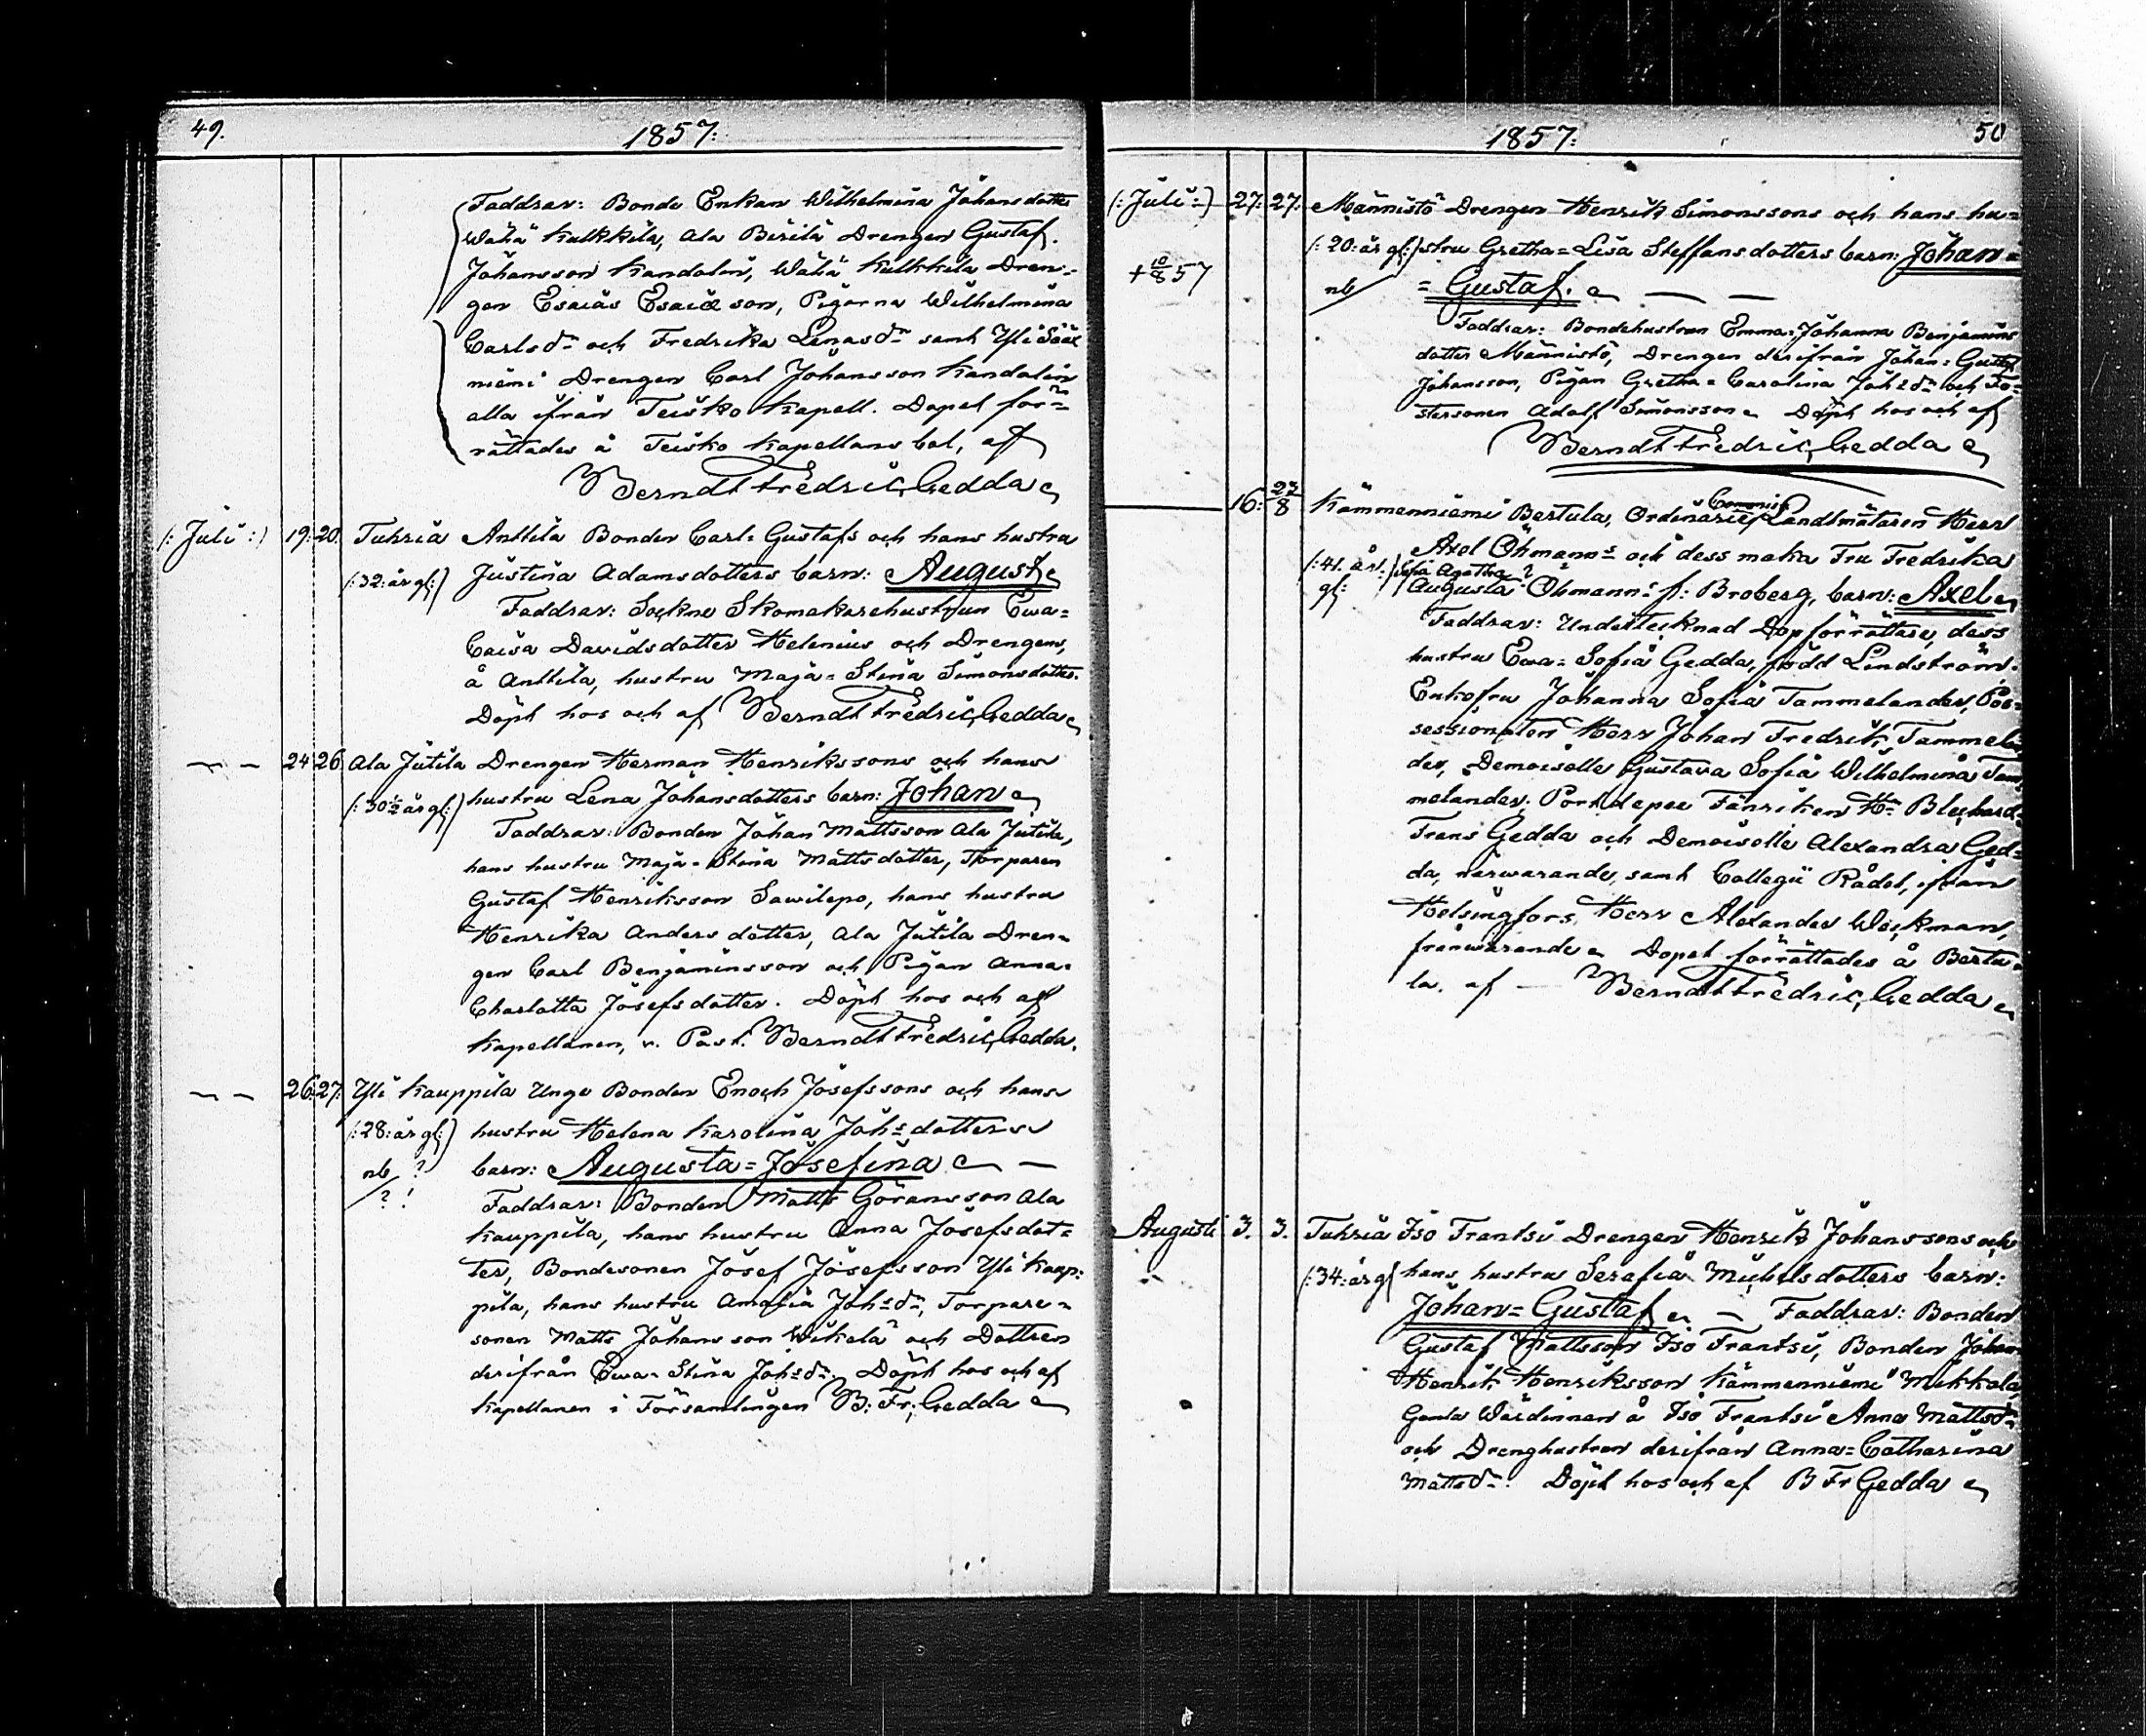 49.
1857:
Faddrar: Bonde Enkan Wilhelmina Johansdotter
Wähä Kulkkila, Ala Birilä Drengen Gustaf
Johansson Kandolin, Wähä Kulkkila Dren=
gen Esaias Esaiæ son, Pigorna Wilhelmina
Carlsdr och Fredrika Lenasdr samt Yli Sääx
niemi Drengen Carl Johansson Kandolin
alla ifrån Teisko Kapell. Dopet för=
rättades å Teisko Kapellans bol, af
Berndt Fredric Gedda
(: Juli :) 19. 20. Tuhria Anttila Bonden Carl Gustafs och hans hustru
(: 32: år gl :) Justina Adamsdotters barn: August
Faddrar: Sockne Skomakarehustrun Ewa=
Caisa Davidsdotter Helenius och Drengens,
å Anttila, hustru Maja=Stina Simonsdotter.
Döpt hos och af Berndt Fredric Gedda
24 26. Ala Jutila Drengen Herman Henrikssons och hans
(: 30½ år gl :) hustru Lena Johansdotters barn: Johan
Faddrar: Bonden Johan Mattsson Ala Jutila,
hans hustru Maja=Stina Mattsdotter, Torparen
Gustaf Henriksson Sawilepo, hans hustru
Henrika Andersdotter, Ala Jutila Dren=
gen Carl Benjaminsson och Pigan Anna=
Charlotta Josefsdotter. Döpt hos och af
Kapellanen, v. Past. Berndt Fredric Gedda.
26. 27. Yli Kauppila Unge Bonden Enoch Josefssons och hans
(: 28: år gl :) hustru Helena Karolina Johsdotters
nb ? barn: Augusta=Josefina
? !
Faddrar: Bonden Matts Göransson Ala
Kauppila, hans hustru Anna Josefsdot=
ter, Bondesonen Josef Josefsson Yli Kaup=
pila, hans hustru Amalia Johsdr, Torpare=
sonen Matts Johansson Wikelä och Dottren
derifrån Ewa=Stina Johsdr. Döpt hos och af
Kapellanen i Församlingen B: Fr: Gedda
1857:
50
(: Juli :) 27. 27. Männistö Drengen Henrik Simonssons och hans hu=
(: 20: år gl :) stru Gretha=Lisa Steffansdotters barn: Johan=
+ 10/8 57
nb = Gustaf.
Faddrar: Bondehustrun Emma=Johanna Benjamins
dotter Männistö, Drengen derifrån Johan=Gustaf
Johansson, Pigan Gretha=Carolina Johsdr och Fo=
stersonen Adolf Simonsson. Döpt hos och af
Berndt Fredric Gedda
16. 27/8 Kämmenniemi Bertula, Ordinarie Commiss Landtmätaren Herr
Axel Öhmanns och dess maka Fru Fredrika
(: 41. år :) Sofia Agatha ?
gl: Augusta Öhmann f: Broberg, barn: Axel
Faddrar: Undertecknad Dopförrättare, dess
hustru Ewa=Sofia Gedda, född Lindström.
Enkofru Johanna Sofia Tammelander, Pos=
sessionaten Herr Johan Fredrik Tammelan
der, Demoiselle Gustava Sofia Wilhelmina Tam
melander. Portdepee Fänriken Hr
Frans Gedda och Demoiselle Alexandra Ged=
da, närwarande, samt Collegii Rådet, ifrån
Helsingfors, Herr Alexander Weckman,
frånwarande. Dopet förrättades å Bertu=
la, af — Berndt Fredric Gedda
Augusti 3. 3. Tuhria Iso Frantsi Drengen Henrik Johanssons och
(: 34: år gl hans hustru Serafia Michelsdotters barn:
Johan=Gustaf — Faddrar: Bonden
Gustaf Mattsson Iso Frantsi, Bonden Johan
Henrik Henriksson Kämmenniemi Mikkola,
Gamla Wärdinnan å Iso Frantsi Anna Mattsdr
och Drenghustrun derifrån Anna=Catharina
Mattsdr. Döpt hos och af B Fr Gedda